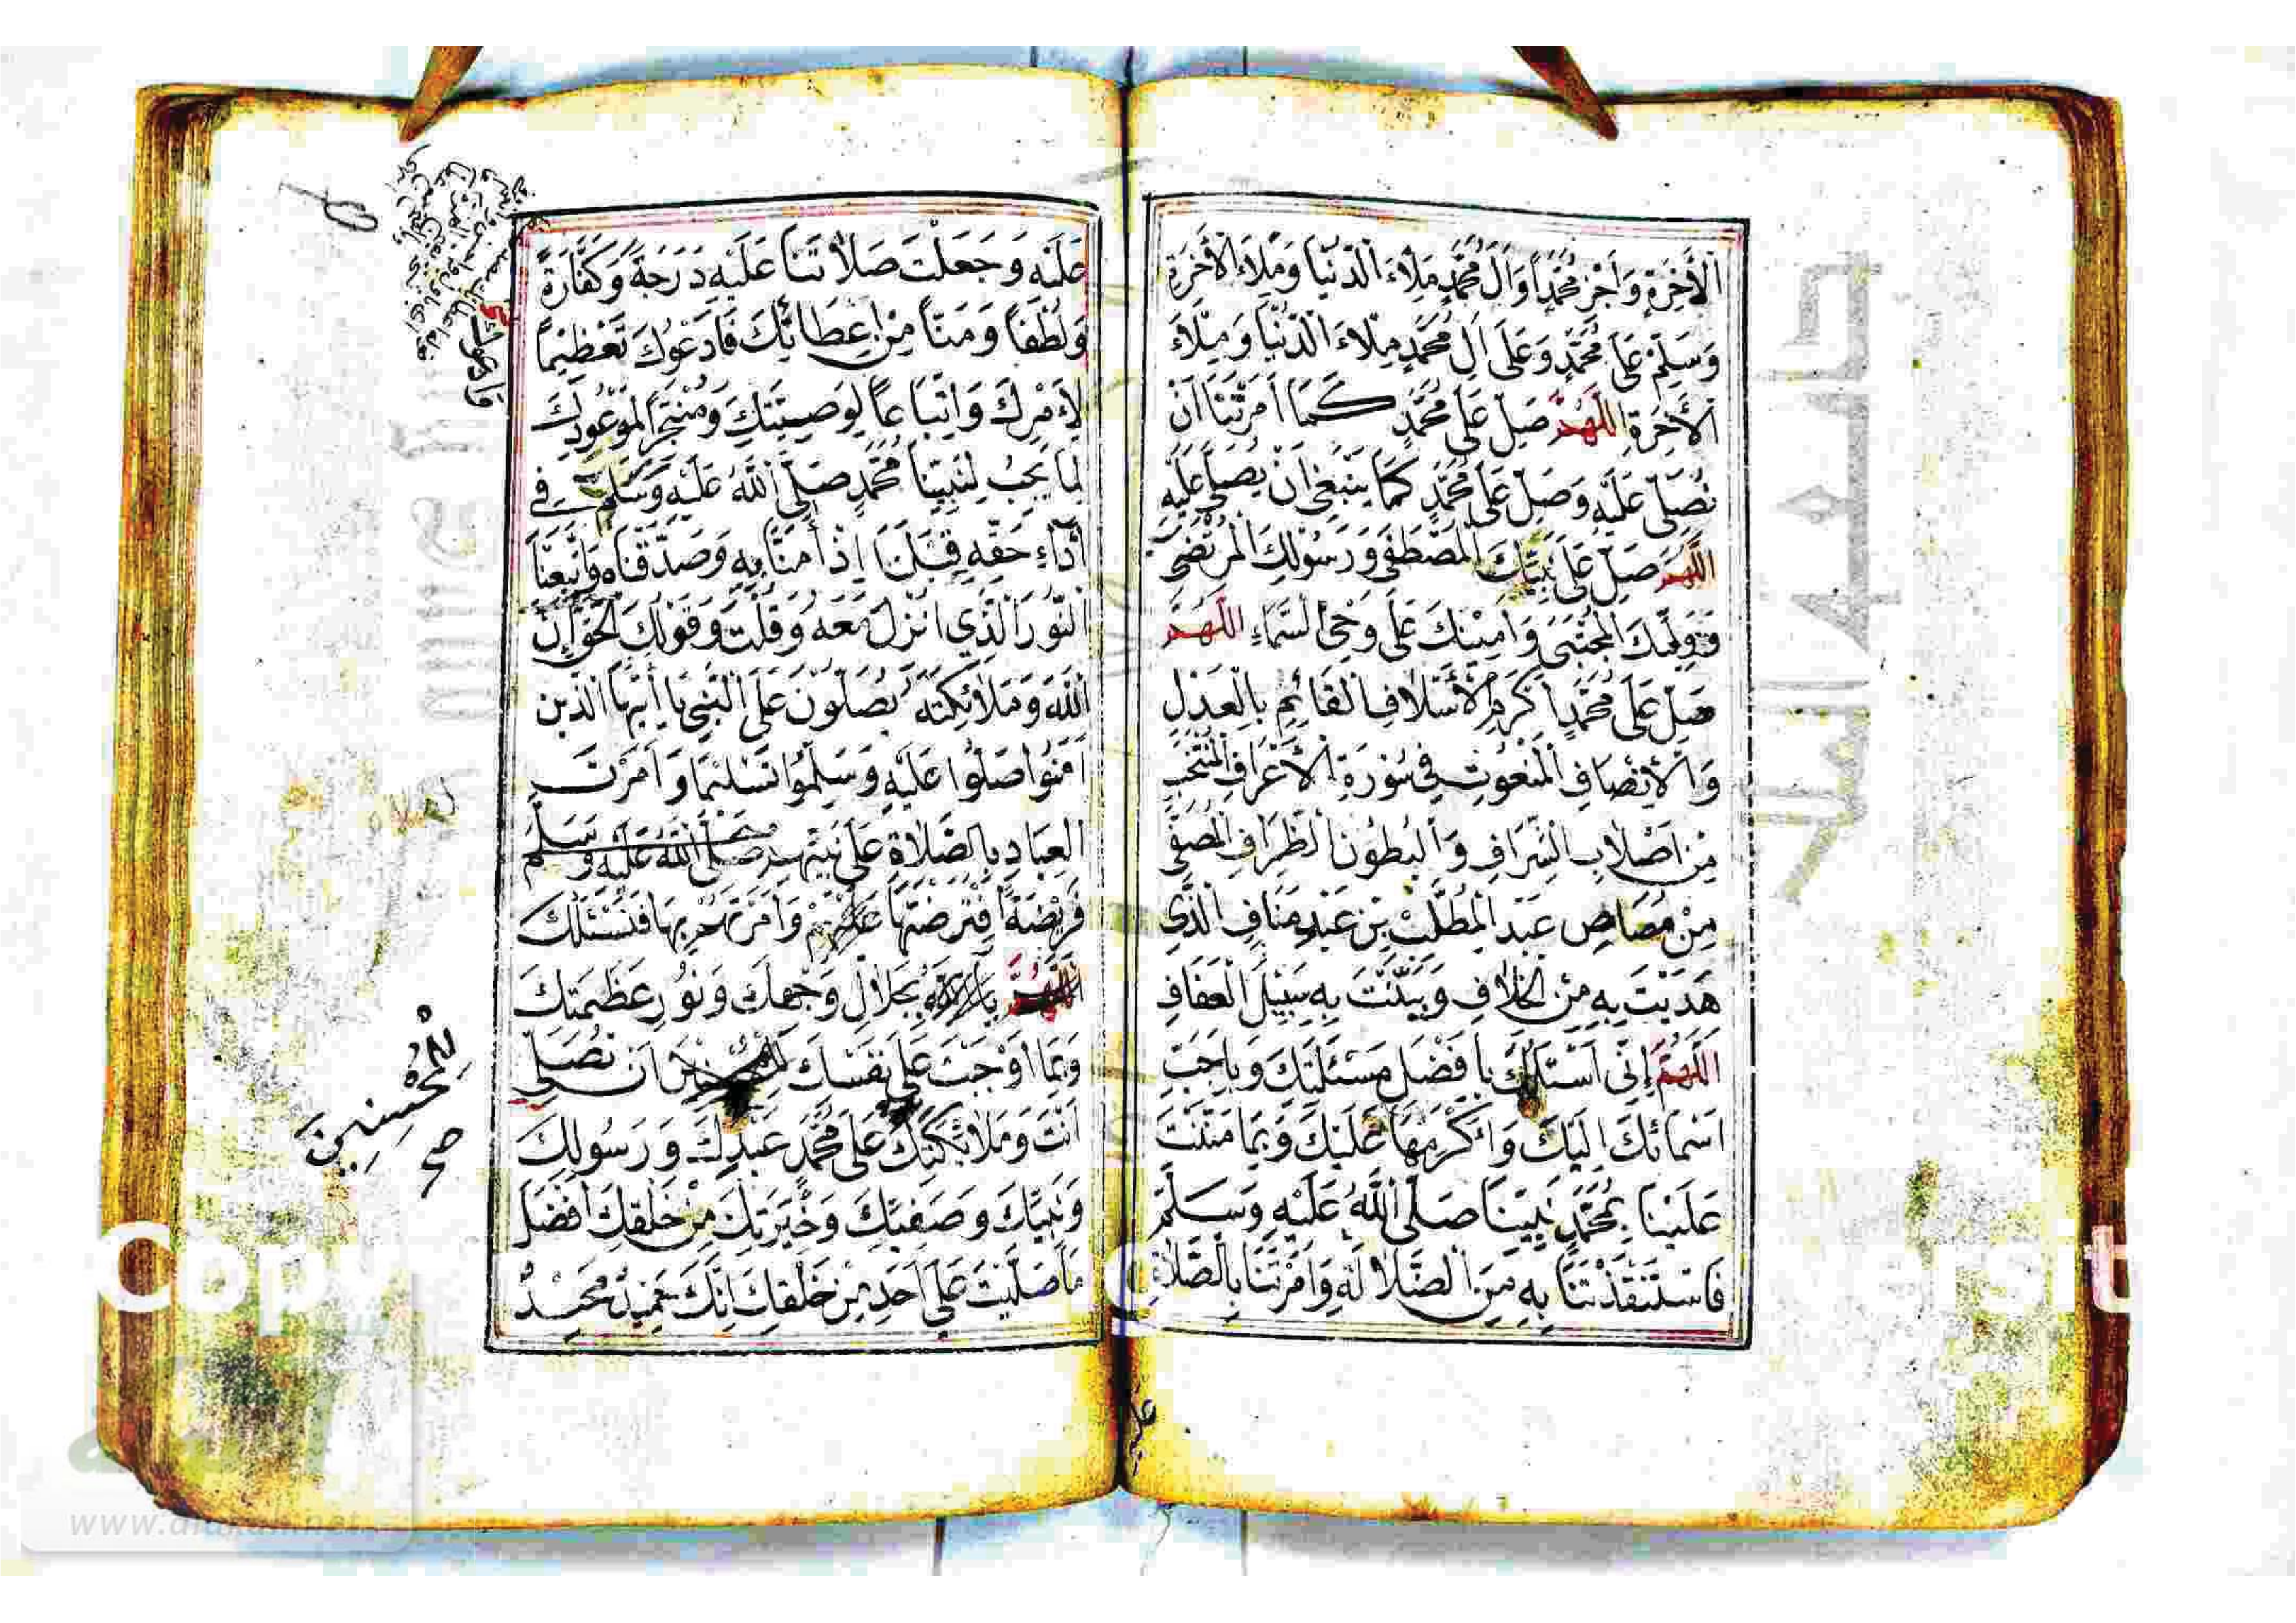 الْأٰخِرَةِ وَاَجْزِ مُحَمَّدًا وَاٰلَ مُحَمَّدٍ مِلَاءَ الدُّنْيَا وَمِلَاءَ الْأٰخِرَةِ
وَسَلِّمْ عَلَى مُحَمَّدٍ وَعَلَى اٰلِ مُحَمَّدٍ مِلَاءَ الدُّنْيَا وَمِلَاءَ
الْأٰخِرَةِ اَللّٰهُمَّ صَلِّ عَلَى مُحَمَّدٍ كَمَا اَمَرْتَنَا اَنْ
نُصَلِّيَ عَلَيْهِ وَصَلِّ عَلَى مُحَمَّدٍ كَمَا يَنْبَغِي اَنْ يُصَلّٰى عَلَيْهِ
اَللّٰهُمَّ صَلِّ عَلَى نَبِيِّكَ الْمُصْطَفٰى وَرَسُوْلِكَ الْمُرْتَضٰى
وَوَلِيِّكَ الْمُجْتَبٰى وَاَمِيْنِكَ عَلَى وَحْيِ السَّمَاءِ اَللّٰهُمَّ
صَلِّ عَلَى مُحَمَّدٍ اَكْرَمِ الْأَسْلَافِ الْقَائِمِ بِالْعَدْلِ
وَالْاِنْصَافِ الْمَنْعُوْتِ فِي سُوْرَةِ الْأَعْرَافِ الْمُنْتَخَبِ
مِنْ اَصْلَابِ الشِّرَافِ وَالْبُطُوْنِ الظِّرَافِ الْمُصَفّٰى
مِنْ مُصَاصِ عَبْدِ الْمُطَّلِبْ بِنْ عَبْدِ مَنَافِ الَّذِي
هَدَيْتَ بِهِ مِنَ الْخِلَافِ وَبَيَّنْتَ بِهِ سَبِيْلَ الْعَفَافِ
اَللّٰهُمَّ اِنِّي اَسْئَلُكَ بِاَفْضَلِ مَسْئَلَتِكَ وَبِاَحَبِّ
اَسْمَائِكَ اِلَيْكَ وَاَكْرَمِهَا عَلَيْكَ وَبِمَا مَنَنْتَ
عَلَيْنَا بِمُحَمَّدٍ نَبِيِّنَا صَلَّى اللّٰهُ عَلَيْهِ وَسَلَّمَ
فَاسْتَنْقَذْتَنَا بِهِ مِنَ الضَّلَالَةِ وَاَمَرْتَنَا بِالصَّلَاةِ
عليه
عَلَيْهِ وَجَعَلْتَ صَلَاتَنَا عَلَيْهِ دَرَجَةً وَكَفَّارَةً
وَلُطْفًا وَمَنًّا مِنْ اِعْطَائِكَ فَاَدْعُوْكَ تَعْظِيْمًا
لِأَمْرِكَ وَاتِّبَاعًا لِوَصِيَّتِكَ وَمُنْتَجِزًا لِمَوْعُوْدِكَ
لِمَا يَجِبُ لِنَبِيِّنَا مُحَمَّدٍ صَلَّى اللّٰهُ عَلَيْهِ وَسَلَّمَ فِي
اَدَاءِ حَقِّهِ قِبَلَنَا اِذْ اٰمَنَّا بِهِ وَصَدَّقْنَاهُ وَاتَّبَعْنَا
النُّوْرَ الَّذِي اُنْزِلَ مَعَهُ وَقُلْتَ وَقَوْلُكَ الْحَقُّ اِنَّ
اللّٰهَ وَمَلَائِكَتَهُ يُصَلُّوْنَ عَلَى النَّبِيِّ يَا اَيُّهَا الَّذِيْنَ
اٰمَنُوْا صَلُّوْا عَلَيْهِ وَسَلِّمُوْا تَسْلِيْمًا وَاَمَرْتَ
الْعِبَادَ بِالصَّلَاةِ عَلَى نَبِيِّهِمْ صَلَّى اللّٰهُ عَلَيْهِ وَسَلَّمَ
فَرِيْضَةً اِفْتَرَضْتَهَا عَلَيْهِمْ وَاَمَرْتَهُمْ بِهَا فَنَسْئَلُكَ
اَللّٰهُمَّ بِجَلَالِ وَجْهِكَ وَنُوْرِ عَظَمَتِكَ
وَبِمَا اَوْجَبْتَ عَلَى نَفْسِكَ اَنْ تُصَلِّيَ
اَنْتَ وَمَلَائِكَتُكَ عَلَى مُحَمَّدٍ عَبْدِكَ وَرَسُوْلِكَ
وَنَبِيِّكَ وَصَفِيِّكَ وَخِيَرَتِكَ مِنْ خَلْقِكَ اَفْضَلَ
مَا صَلَّيْتَ عَلَى اَحَدٍ مِنْ خَلْقِكَ اِنَّكَ حَمِيْدٌ مَجِيْدٌ
لِلْمُحْسِنِيْنَ
صح